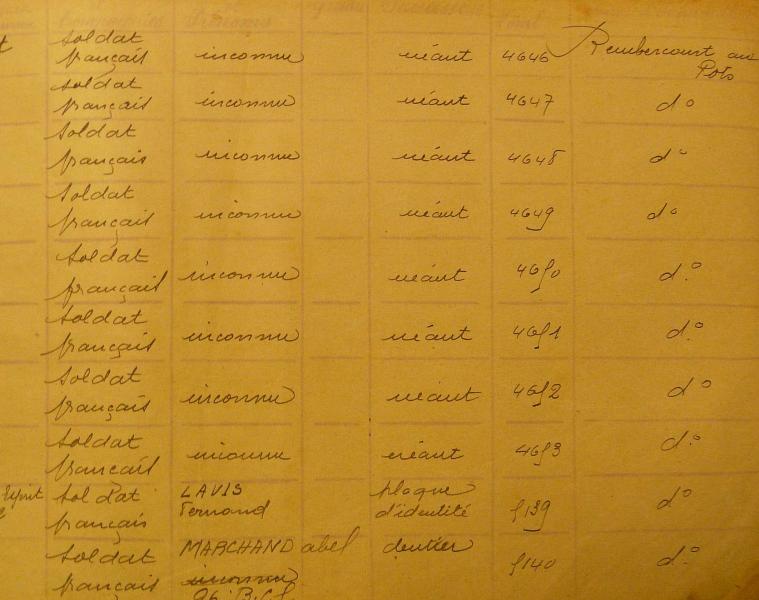 Soldat
français inconnu néant 4646 Rembercourt aux
Pots
Soldat
français inconnu néant 4647 d°
Soldat
français inconnu néant 4648 d°
Soldat
français inconnu néant 4649 d°
Soldat
français inconnu néant 4650 d°
Soldat
français inconnu néant 4651 d°
Soldat
français inconnu néant 4652 d°
Soldat
français inconnu néant 4653 d°
Soldat LAVIS plaque
français Fernand d'identité 5139 d°
Soldat MARCHAND abel dentier 5140 d°
français inconnu
96. B.C.P